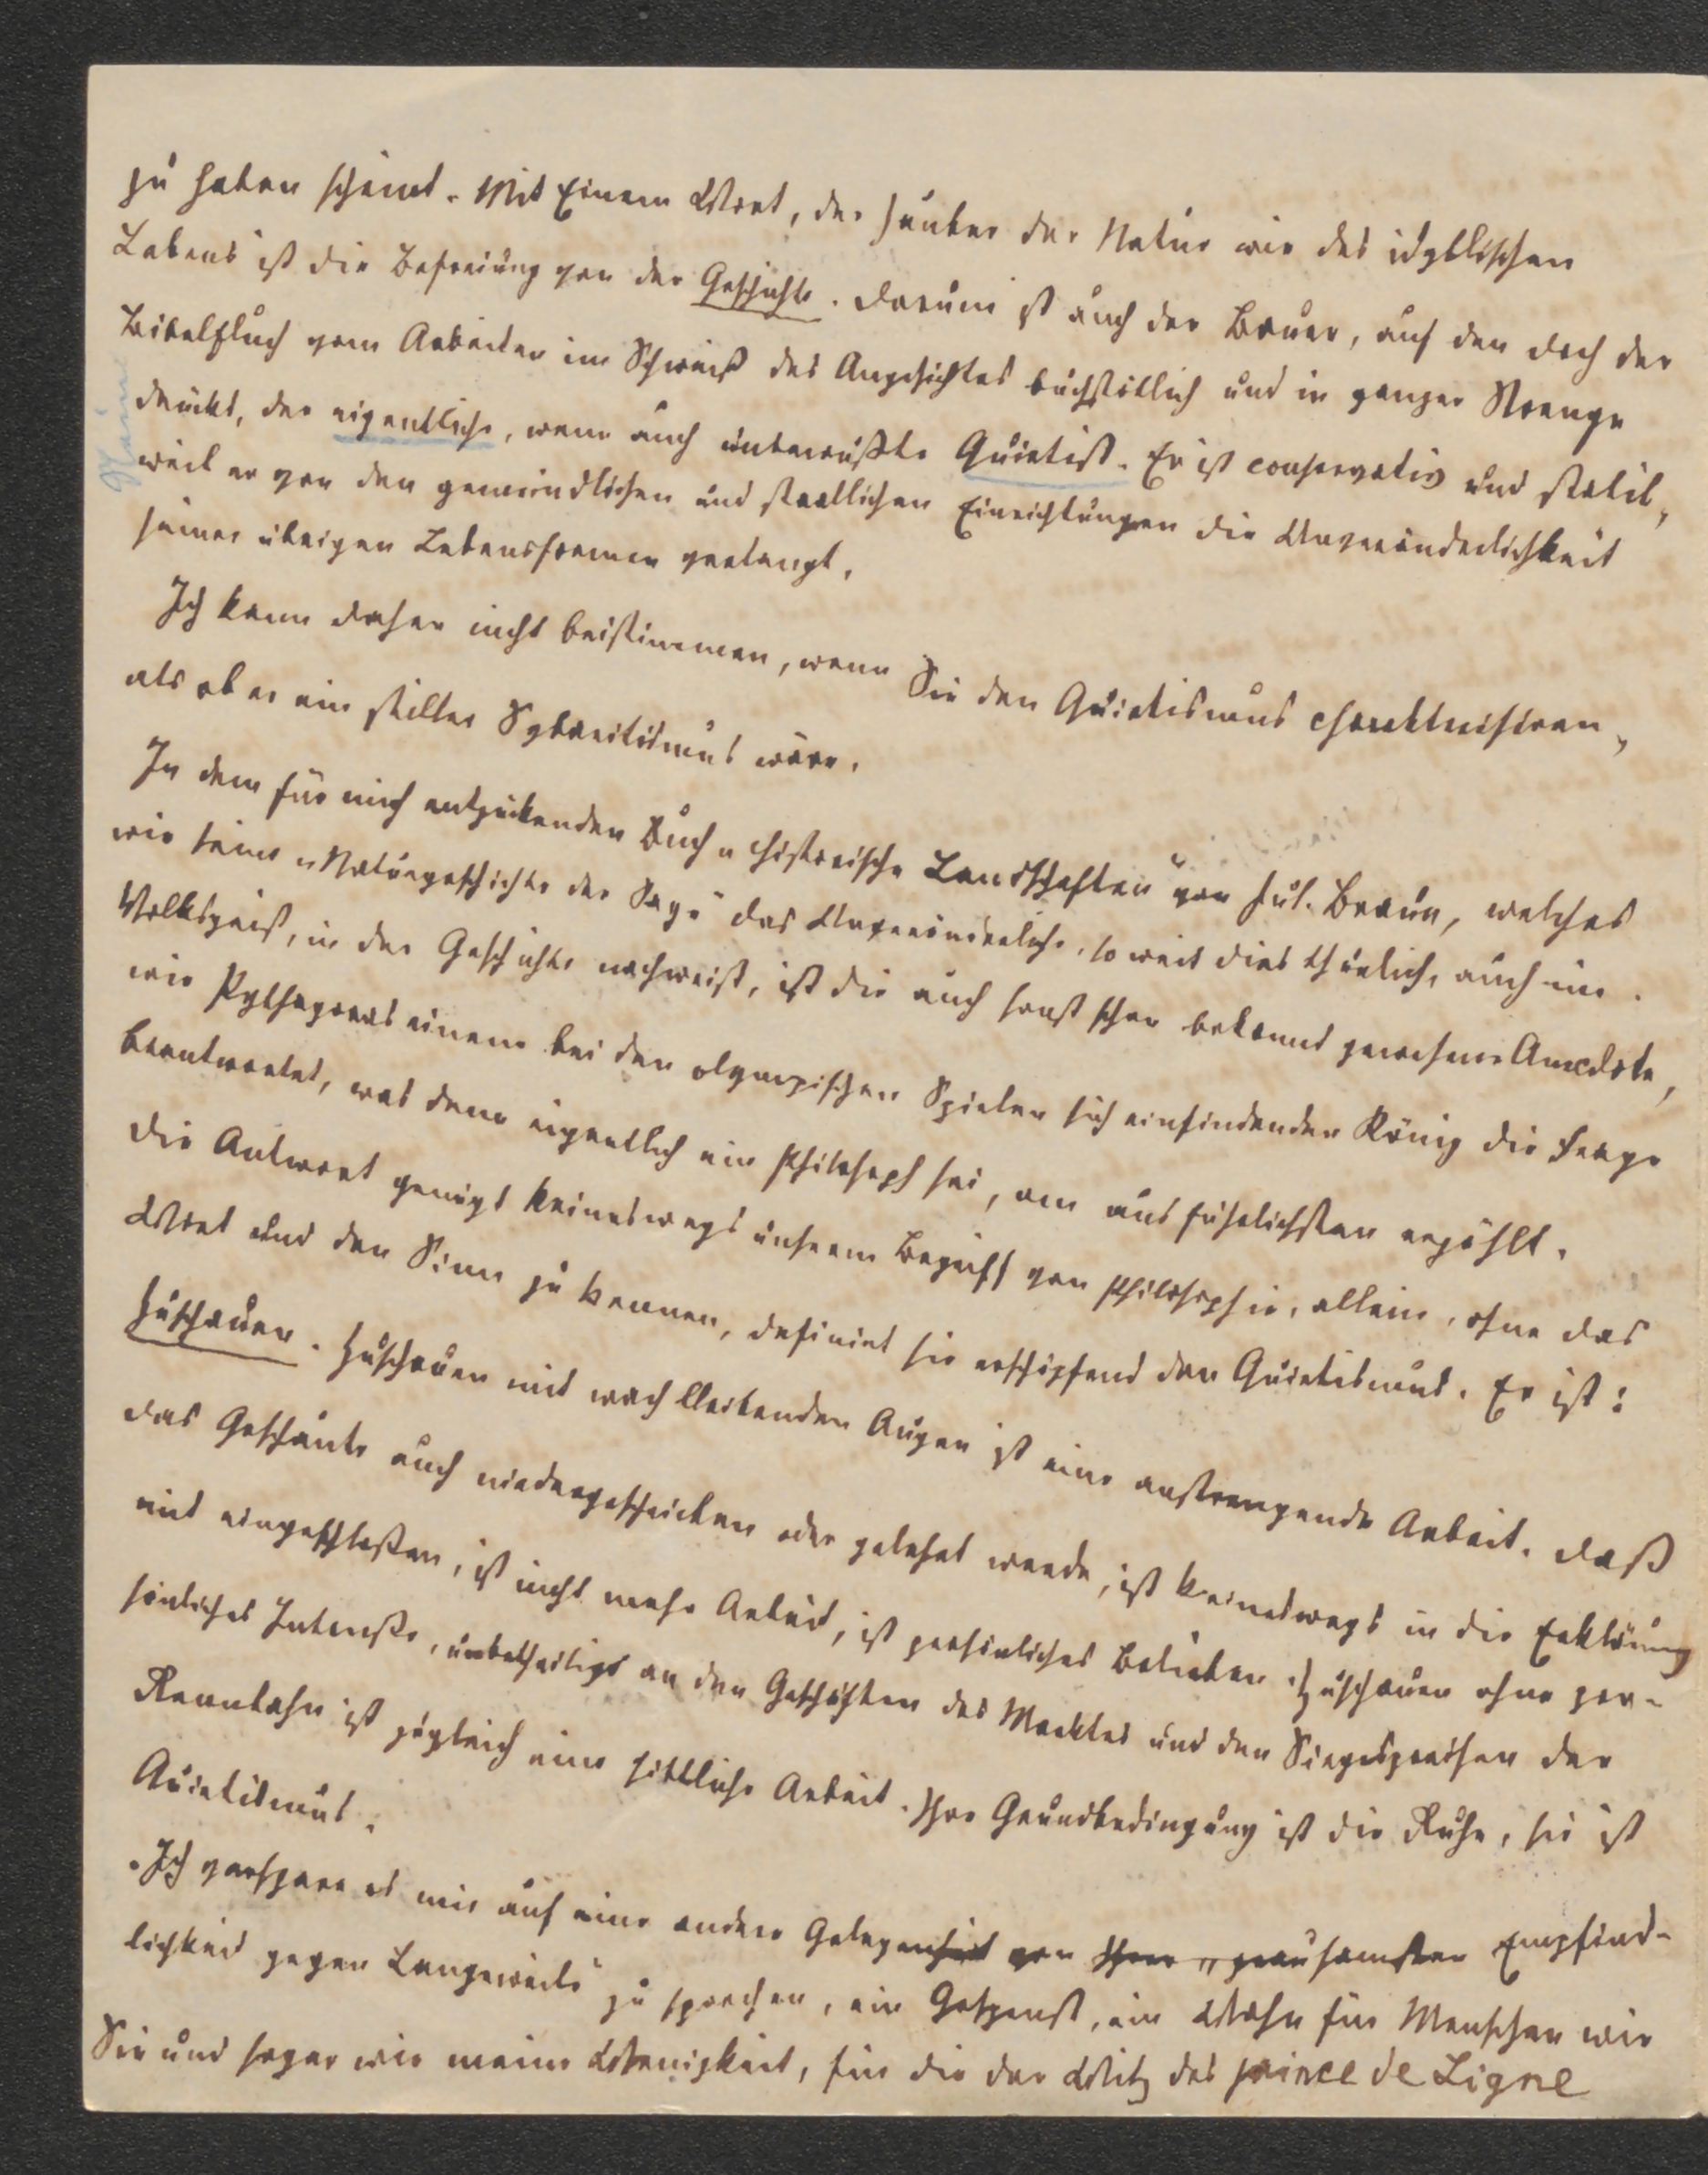 zu haben scheint. Mit Einem Wort, der Zauber der Natur wie des idyllischen
Lebens ist die Befreiung von der Geschichte. Darum ist auch der Bauer, auf den doch der
Bibelfluch vom Arbeiten im Schweiß des Angesichtes buchstäblich und in ganzer Strenge
drückt, der eigentliche, wenn auch unbewußte Quietist. Er ist conservativ und stabil,
weil er von den gemeindlichen und staatlichen Einrichtungen die Unveränderlichkeit
seiner übrigen Lebensformen verlangt.
Ich kann daher nicht beistimmen, wenn Sie den Quietismus charakterisiren,
als ob er ein stiller Sybaritismus wäre.
In dem für mich entzückenden Buch „historische Landschaften" von Jul. Braun, welches
wie seine „Naturgeschichte der Sage" das Unveränderliche, so weit dies thunlich, auch im
Volksgeist, in der Geschichte nachweist, ist die auch sonst schon bekannt gewesene Anecdote,
wie Pythagoras einem bei den olympischen Spielen sich einfindenden König die Frage
beantwortet, was denn eigentlich ein Philosoph sei, am ausführlichsten erzählt.
Die Antwort genügt keineswegs unserem Begriff von Philosophie, allein, ohne das
Wort und den Sinn zu kennen, definirt sie erschöpfend den Quietismus. Er ist:
Zuschauen. Zuschauen mit wach bleibenden Augen ist eine anstrengende Arbeit. Daß
das Geschaute auch niedergeschrieben oder gelehrt werde, ist keineswegs in die Erklärung
mit eingeschloßen, ist nicht mehr Arbeit, ist persönliches Belieben. Zuschauen ohne per-
sönliches Interesse, unbetheiligt an den Geschäften des Marktes und den Siegespreisen der
Rennbahn ist zugleich eine sittliche Arbeit. Ihre Grundbedingung ist die Ruhe, sie ist
Quietismus.
Ich verspare es mir auf eine andere Gelegenheit von Ihrer „grausamsten Empfind-
lichkeit gegen Langeweile" zu sprechen, ein Gespenst, ein Wahn für Menschen wie
Sie und sogar wie meine Wenigkeit, für die der Witz des prince de Ligne